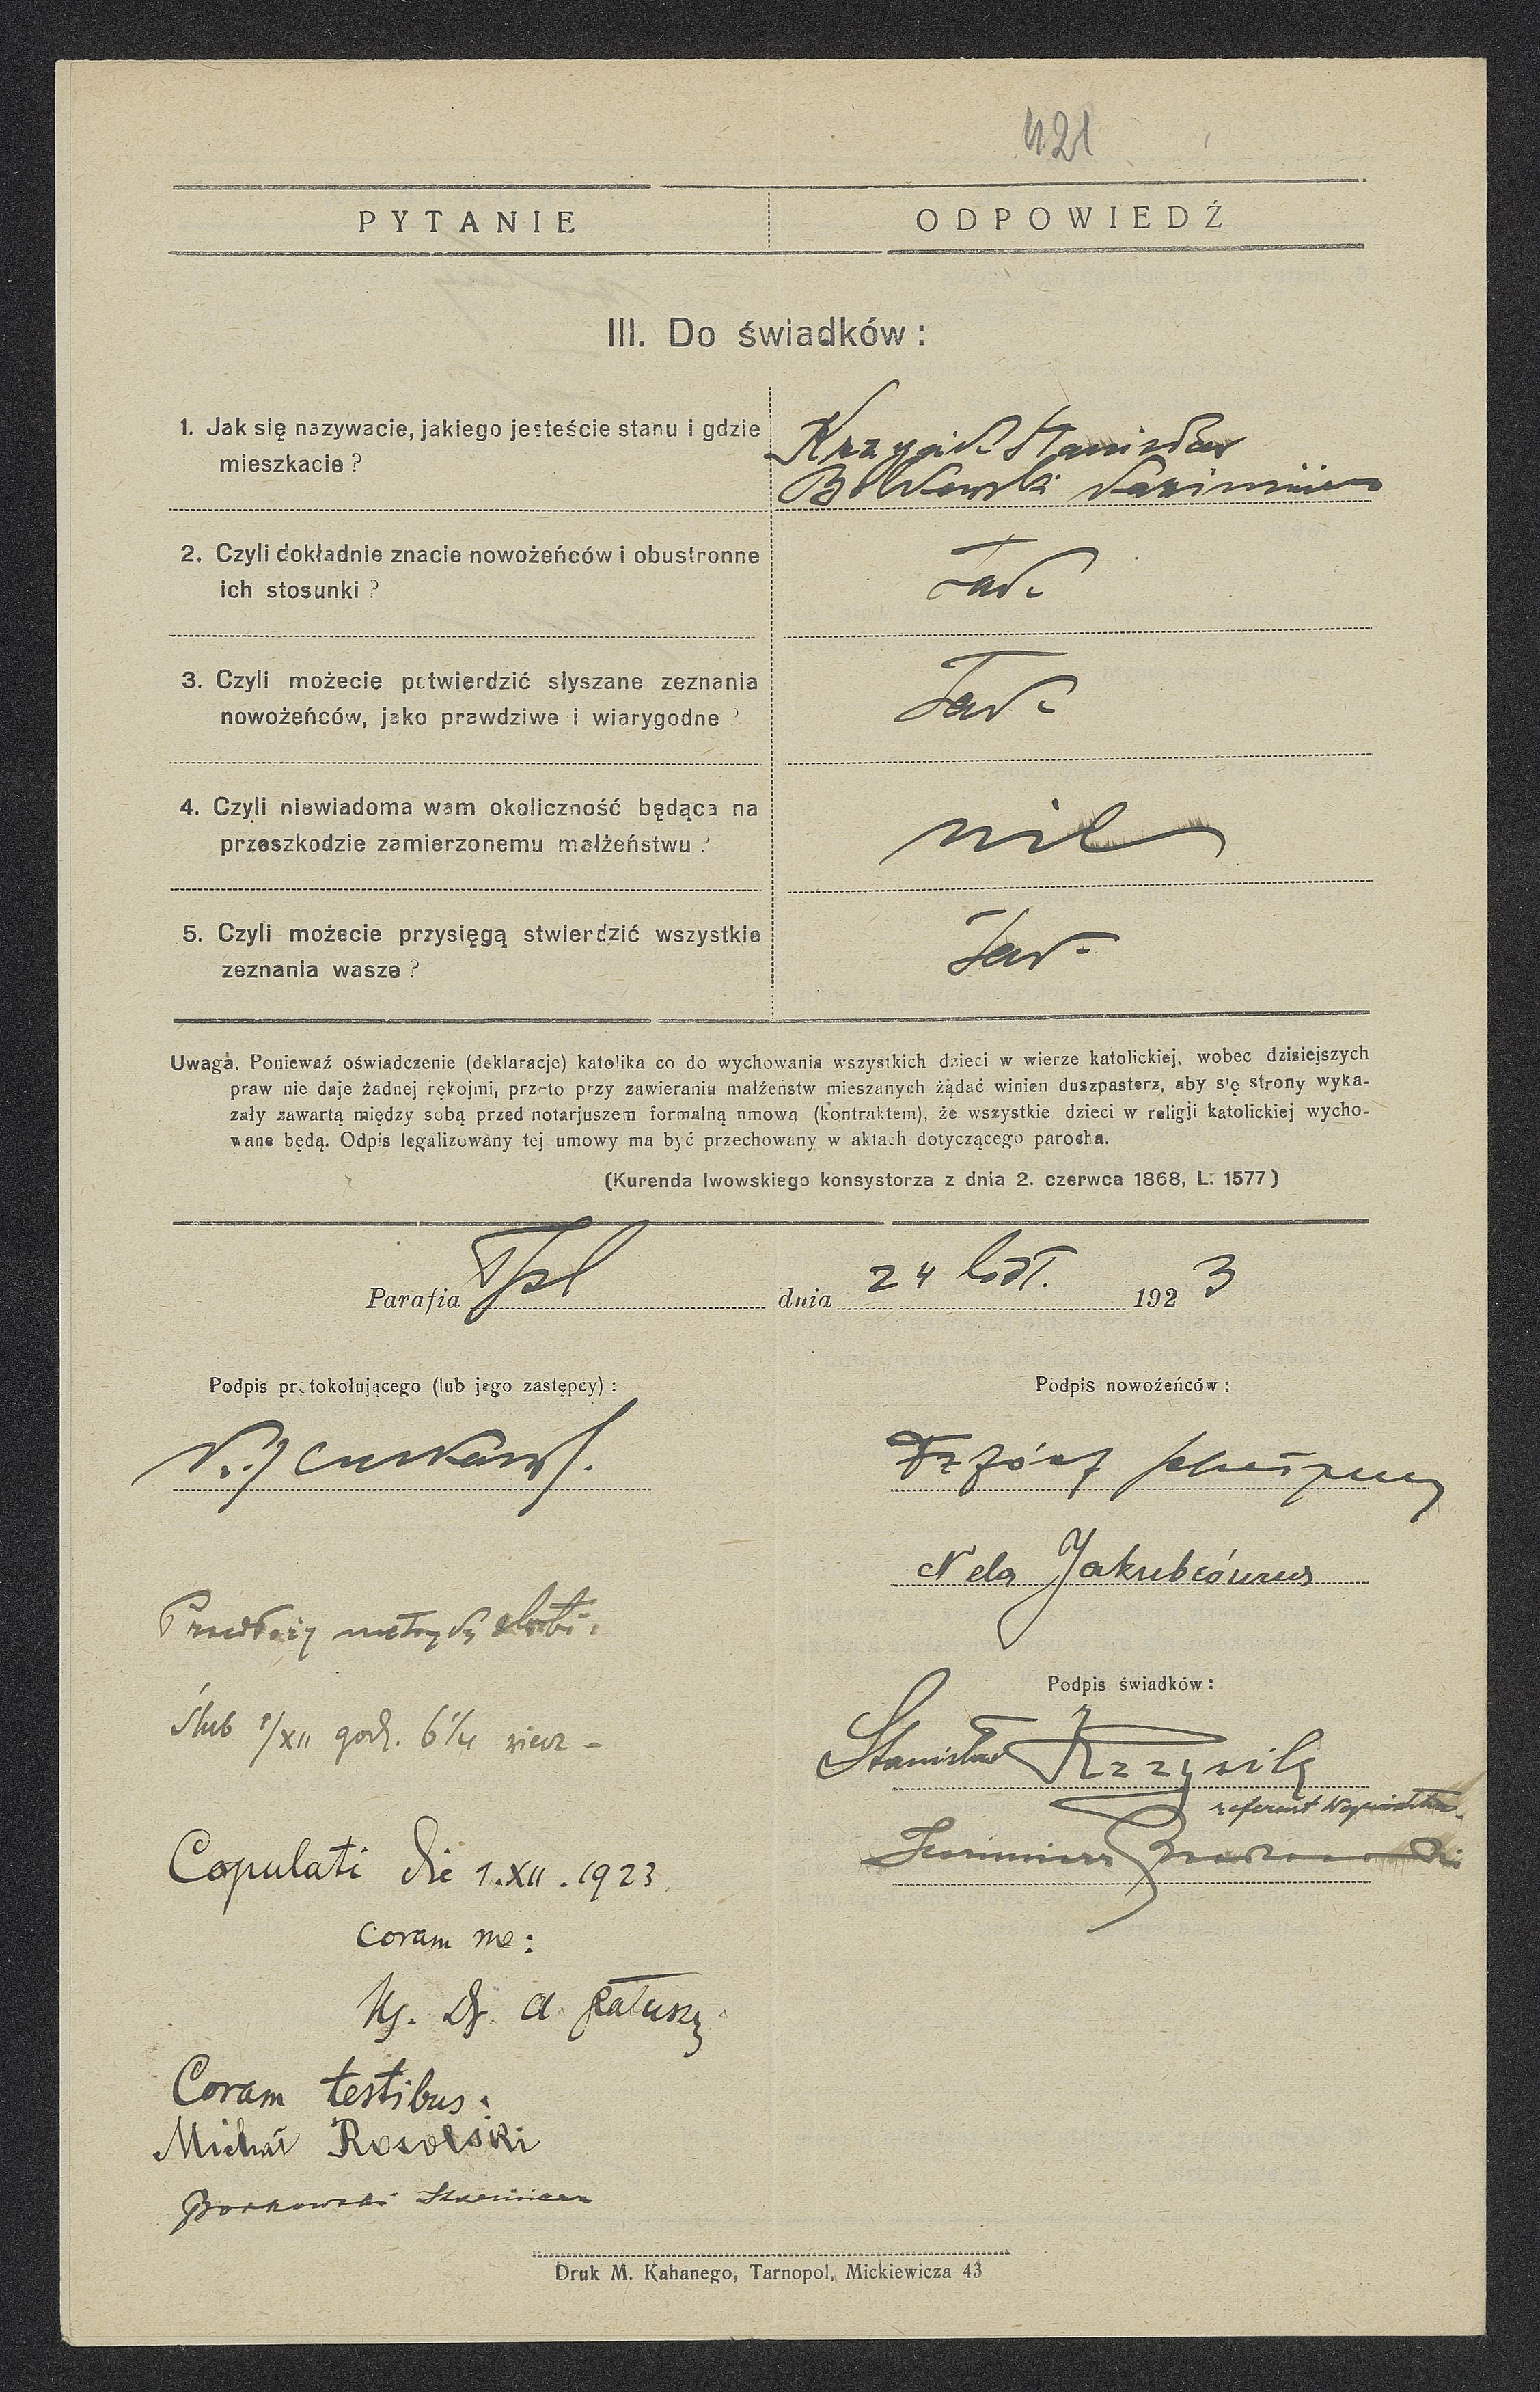 421
PYTANIE
ODPOWIEDŹ
III. Do świadków:
1. Jak się nazywacie, jakiego jesteście stanu i gdzie
mieszkacie?
Stanisław
2. Czyli dokładnie znacie nowożeńców i obustronne
ich stosunki?
Tak
3. Czyli możecie potwierdzić słyszane zeznania
nowożeńców, jako prawdziwe i wiarygodne?
Tak
4. Czyli niewiadoma wam okoliczność będąca na
przeszkodzie zamierzonemu małżeństwu?
nil
5. Czyli możecie przysięgą stwierdzić wszystkie
zeznania wasze?
Tak
Uwaga. Ponieważ oświadczenie (deklaracje) katolika co do wychowania wszystkich dzieci w wierze katolickiej, wobec dzisiejszych
praw nie daje żadnej rękojmi, przeto przy zawieraniu małżeństw mieszanych żądać winien duszpasterz, aby się strony wyka-
zały zawartą między sobą przed notarjuszem formalną nmową (kontraktem), że wszystkie dzieci w religji katolickiej wycho-
wane będą. Odpis legalizowany tej umowy ma być przechowany w aktach dotyczącego parocha.
(Kurenda lwowskiego konsystorza z dnia 2. czerwca 1868, L. 1577)
Parafia Tpl dnia 24 list. 1923
Podpis protokołującego (lub jego zastępcy):
Podpis nowożeńców:
Józef
Nela Jakubcówna
Podpis świadków:
Ślub 1/XII godz. 6 1/4 wiecz -
Stanisław
referent
Kazimierz
Copulati die 1.XII.1923
coram me:
Coram testibus:
Michał Rosolski
Borkowski Kazimierz
Druk M. Kahanego, Tarnopol, Mickiewicza 43